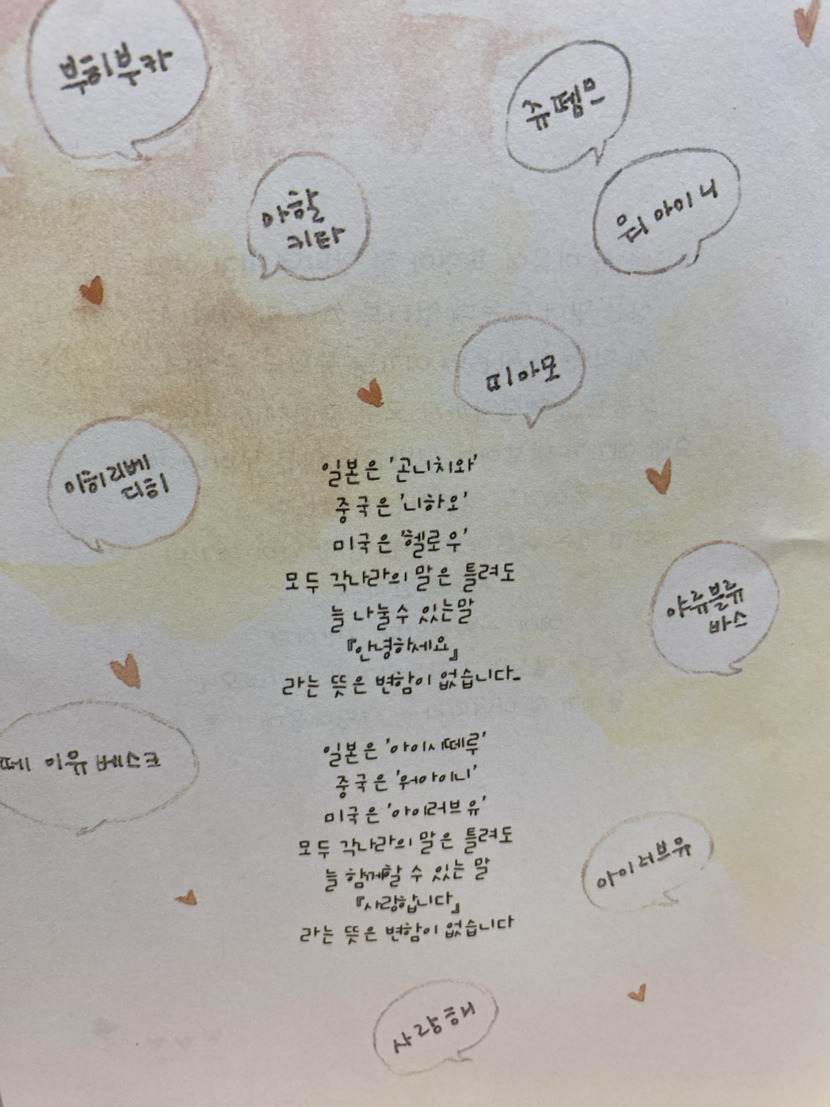 부히부카
쥬뗌므
워 아이 니
아할
키타
띠아모
이히리베
디히
일본은 '곤니치와'
중국은 '니하오'
미국은 '헬로우'
모두 각나라의 말은 틀려도
늘 나눌수 있는말
『안녕하세요』
라는 뜻은 변함이 없습니다-
야류블류
바스
떼 이유베스크
일본은 '아이시떼루'
중국은 '워아이니'
미국은 '아이러브유'
모두 각나라의 말은 틀려도
늘 함께할 수 있는 말
『사랑합니다』
라는 뜻은 변함이 없습니다
아이 러브유
사랑해